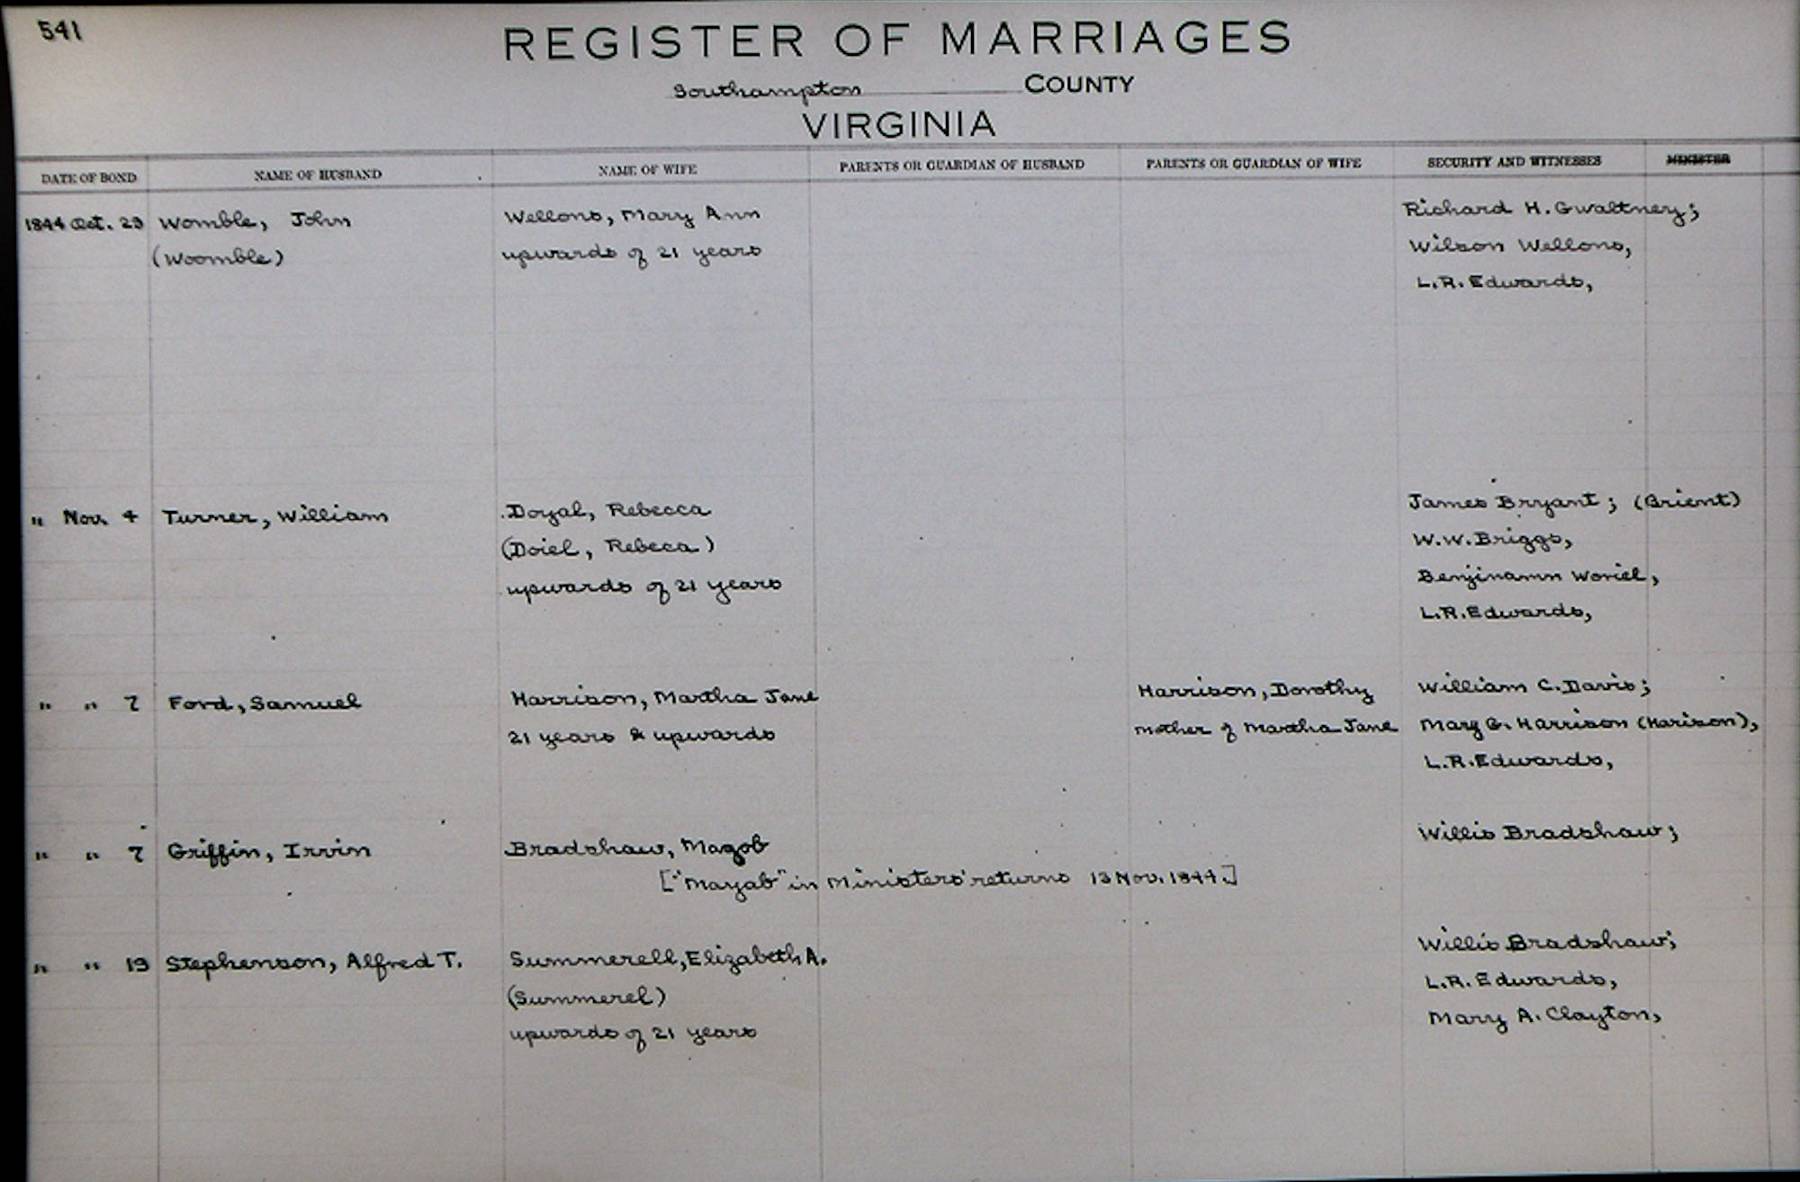 541
REGISTER OF MARRIAGES
Southampton COUNTY
VIRGINIA
DATE OF BOND NAME OF HUSBAND NAME OF WIFE PARENTS OR GUARDIAN OF HUSBAND PARENTS OR GUARDIAN OF WIFE SECURITY AND WITNESSES MINISTER
1844 Oct. 23 Womble, John Wellons, Mary Ann Richard H. Gwaltney;
(Woomble) upwards of 21 years Wilson Wellons,
L.R. Edwards,
" Nov. 4 Turner, William Doyal, Rebecca James Bryant; (Brient)
(Doiel, Rebeca) W.W. Briggs,
upwards of 21 years Benjinamn Woriel,
L.R. Edwards,
" " 7 Ford, Samuel Harrison, Martha Jane Harrison, Dorothy William C. Davis;
21 years & upwards mother of Martha Jane Mary G. Harrison (Harison),
L.R. Edwards,
" " 7 Griffin, Irvin Bradshaw, Magob Willis Bradshaw;
["Mayab" in Ministers' returns 13 Nov. 1844.]
" " 19 Stephenson, Alfred T. Summerell, Elizabeth A. Willis Bradshaw;
(Summerel) L.R. Edwards,
upwards of 21 years Mary A. Clayton,